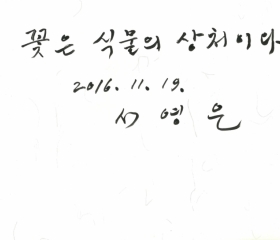 꽃은 식물의 상처이다
2016. 11. 19.
서영은